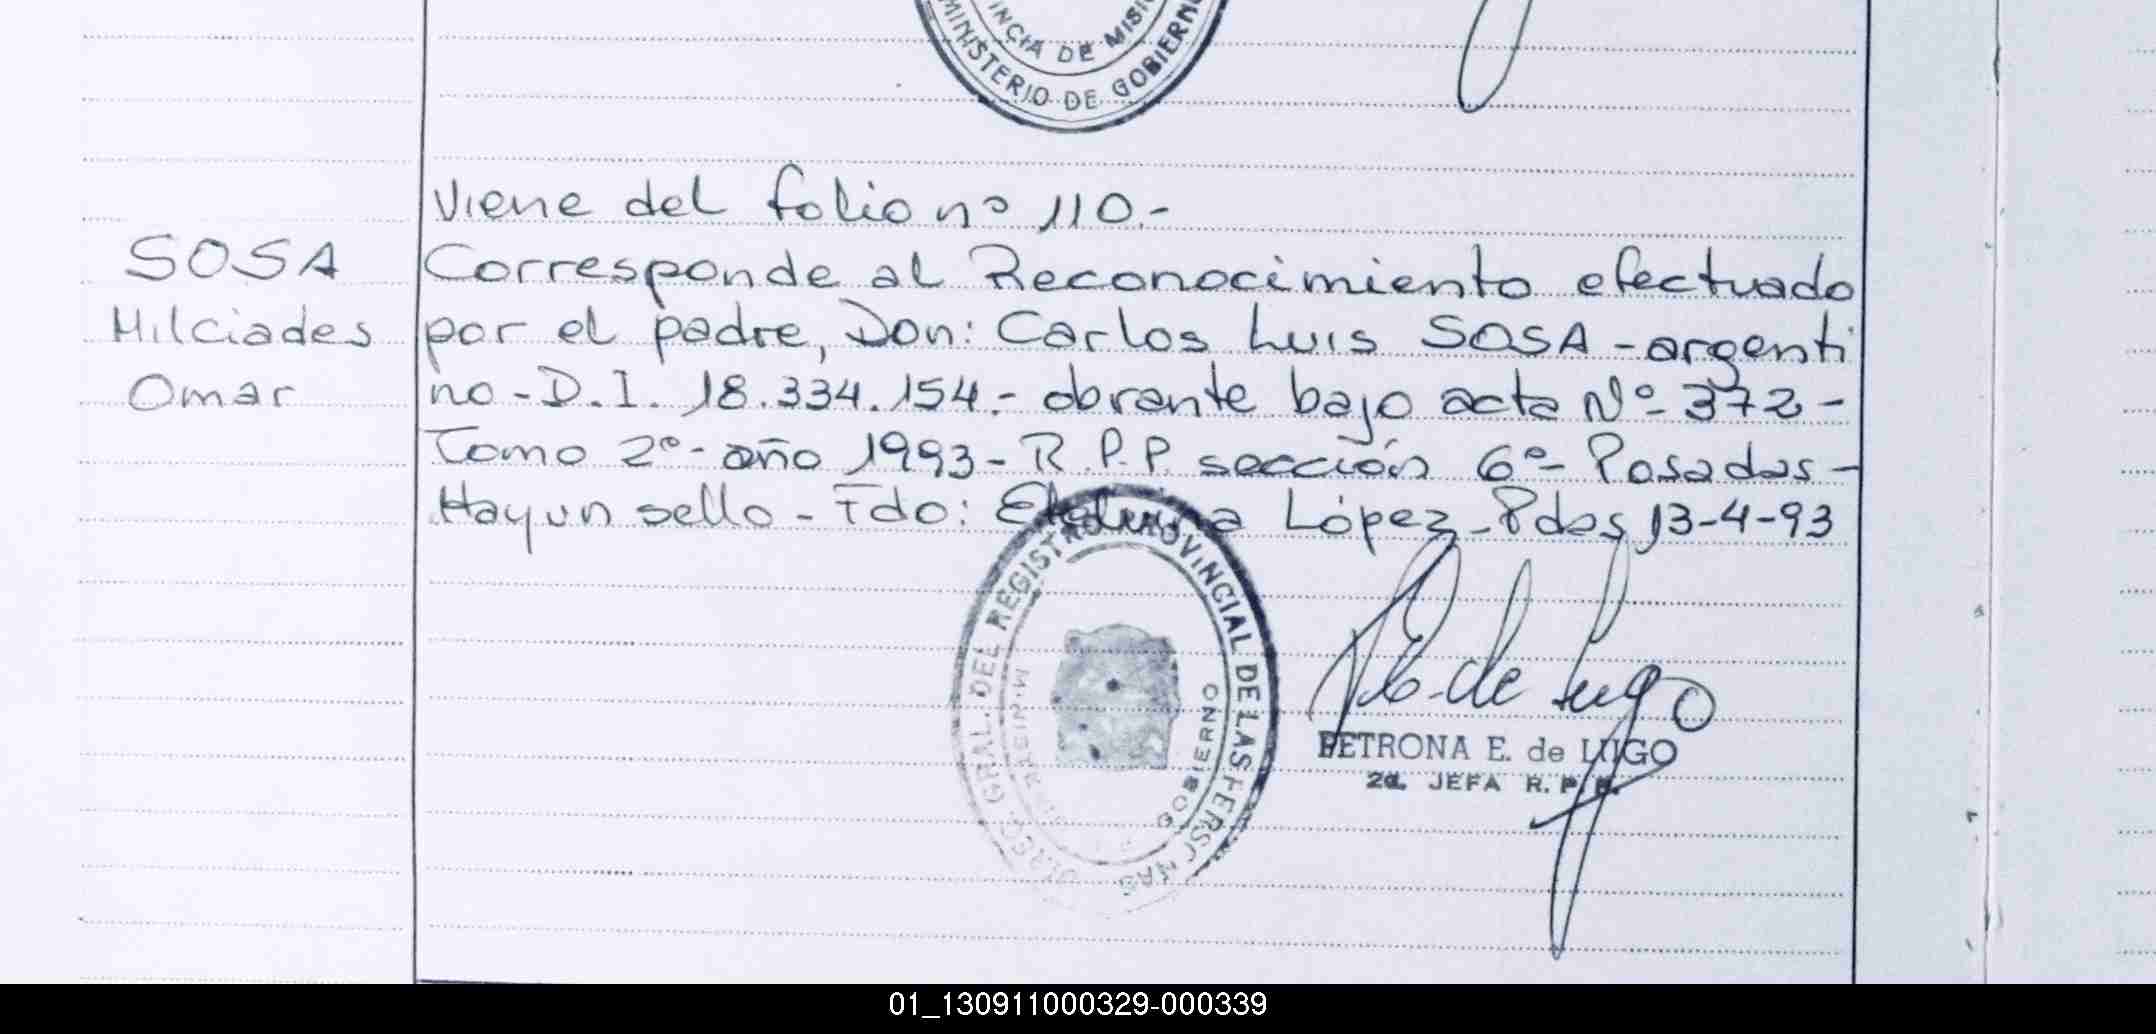 PROVINCIA DE MISIONES
MINISTERIO DE GOBIERNO
Viene del folio nº 110.-
SOSA
Milciades
Omar
Corresponde al Reconocimiento efectuado
por el padre, Don: Carlos Luis SOSA - argenti
no - D.I. 18.334.154.- obrante bajo acta Nº 372 -
Tomo 2º - año 1993 - R.P.P. sección 6º - Posadas -
Hay un sello - Fdo: López - Pdas 13-4-93
DIREC. GRAL. DEL REGISTRO PROVINCIAL DE LAS PERSONAS
MINISTERIO GOBIERNO
P.E. de Lugo
PETRONA E. de LUGO
2a. JEFA R. P. P.
01_130911000329-000339